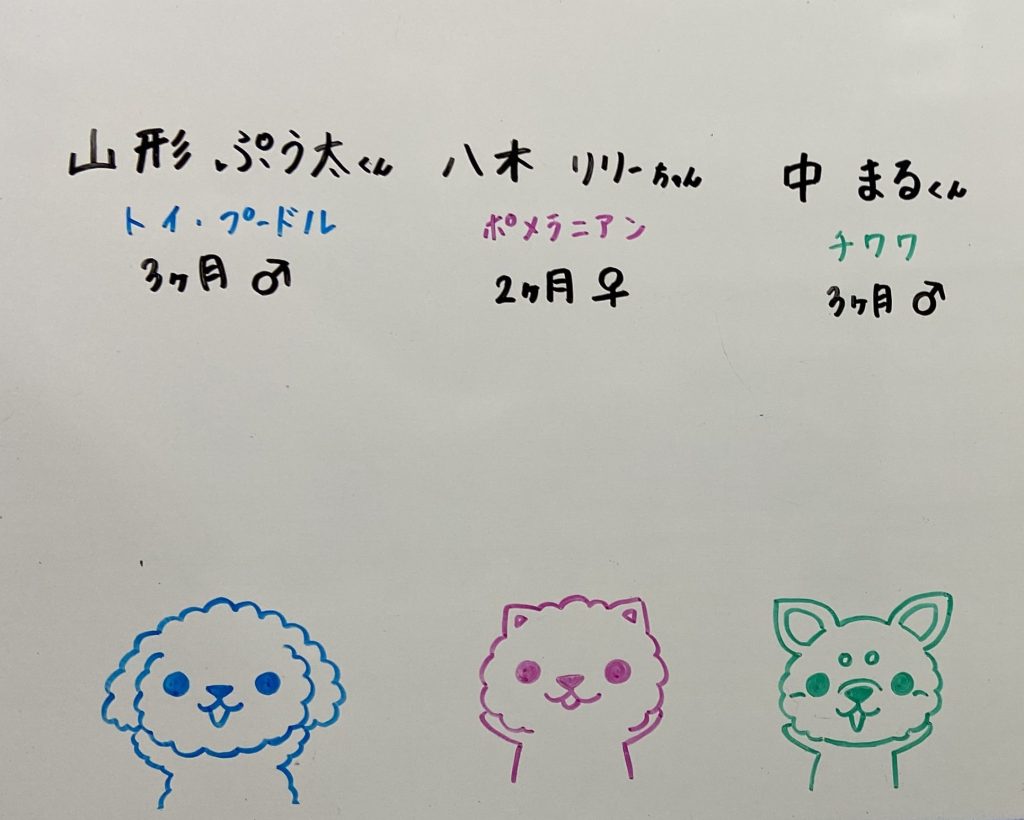 山形 ぷう太くん
トイ・プードル
3ヶ月 ♂
八木 リリーちゃん
ポメラニアン
2ヶ月 ♀
中 まるくん
チワワ
3ヶ月 ♂